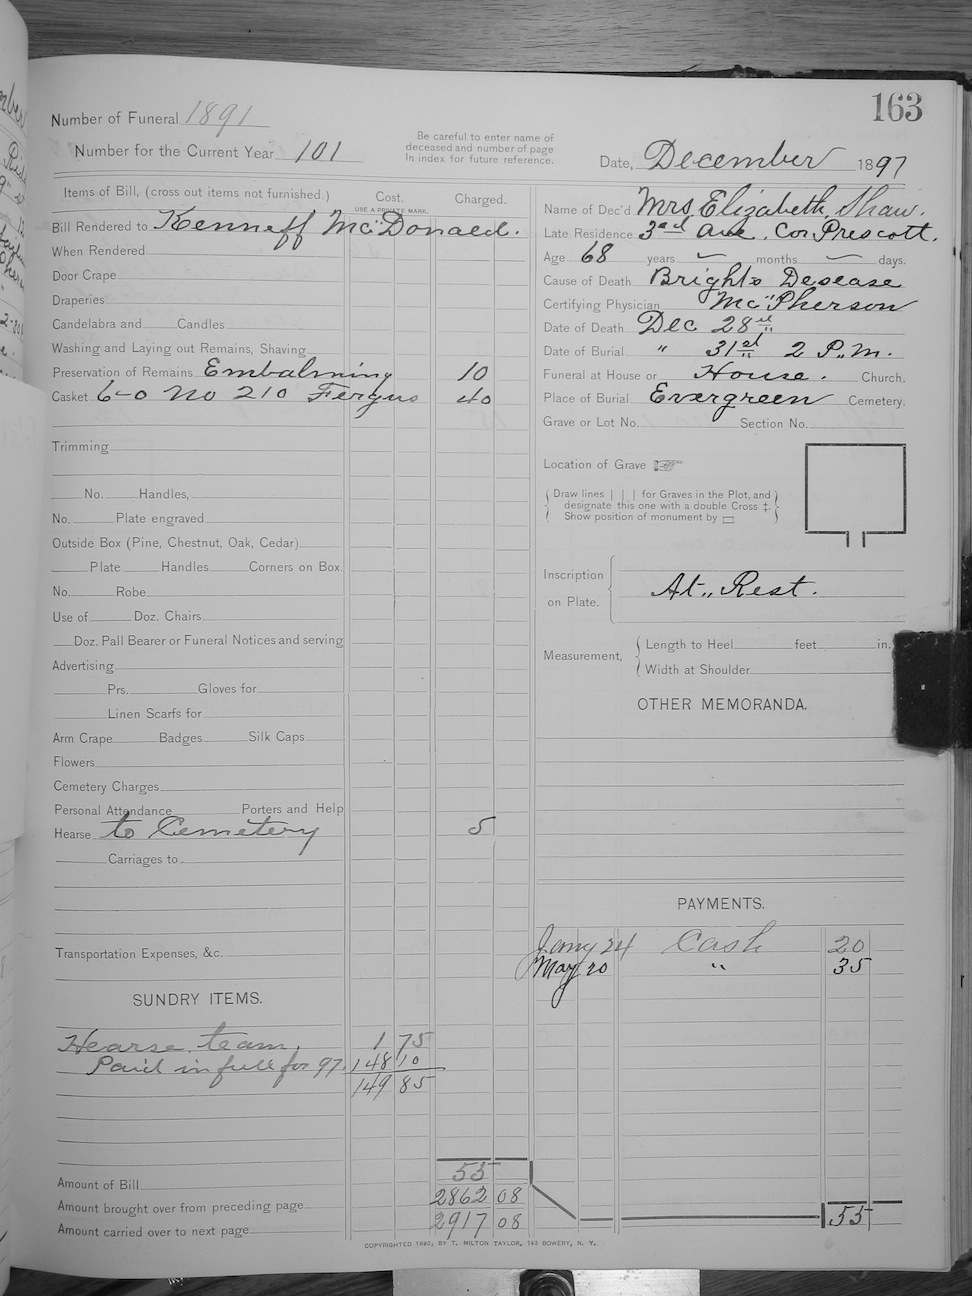 163
Number of Funeral 1891
Number for the Current Year 101
Be careful to enter name of
deceased and number of page
in index for future reference.
Date, December 1897
Items of Bill, (cross out items not furnished.) Cost. Charged.
USE A PRIVATE MARK.
Bill Rendered to Kenneff McDonald.
When Rendered
Door Crape
Draperies
Candelabra and Candles
Washing and Laying out Remains, Shaving
Preservation of Remains Embalming 10
Casket 6-0 No 210 Fergus 40
Trimming
No. Handles,
No. Plate engraved
Outside Box (Pine, Chestnut, Oak, Cedar)
Plate Handles Corners on Box.
No. Robe
Use of Doz. Chairs
Doz. Pall Bearer or Funeral Notices and serving
Advertising
Prs. Gloves for
Linen Scarfs for
Arm Crape Badges Silk Caps
Flowers
Cemetery Charges
Personal Attendance Porters and Help
Hearse to Cemetery 5
Carriages to
Transportation Expenses, &c.
SUNDRY ITEMS.
Hearse team. 1 75
Paid in full for 97. 148 10
149 85
Amount of Bill 55
Amount brought over from preceding page 2862 08
Amount carried over to next page 2917 08
Name of Dec'd Mrs Elizabeth Shaw.
Late Residence 3rd Ave. Cor Prescott.
Age 68 years — months — days.
Cause of Death Brights Desease
Certifying Physician McPherson
Date of Death Dec 28th
Date of Burial " 31st 2 P.M.
Funeral at House or House. Church.
Place of Burial Evergreen Cemetery.
Grave or Lot No. Section No.
Location of Grave
Draw lines | | | for Graves in the Plot, and
designate this one with a double Cross ‡.
Show position of monument by ▭
Inscription
on Plate. At Rest.
Measurement, Length to Heel feet in.
Width at Shoulder
OTHER MEMORANDA.
PAYMENTS.
Jany 24 Cash 20
May 20 " 35
55
COPYRIGHTED 1890, BY T. MILTON TAYLOR, 153 BOWERY, N. Y.